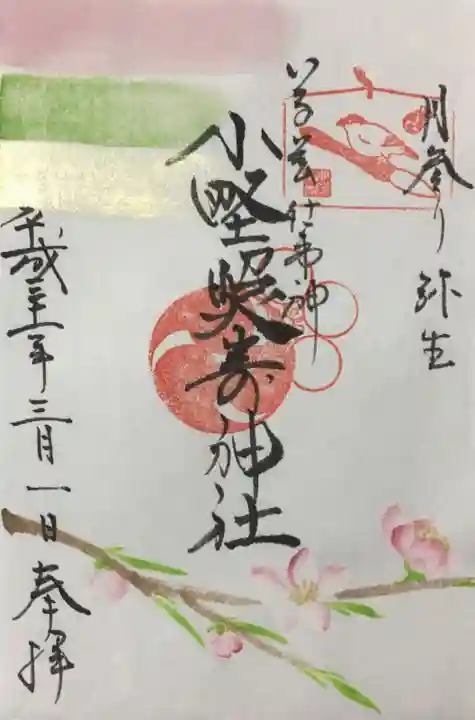 月参り 弥生
学芸仕事神
小野照崎神社
平成三十一年三月一日 奉拝